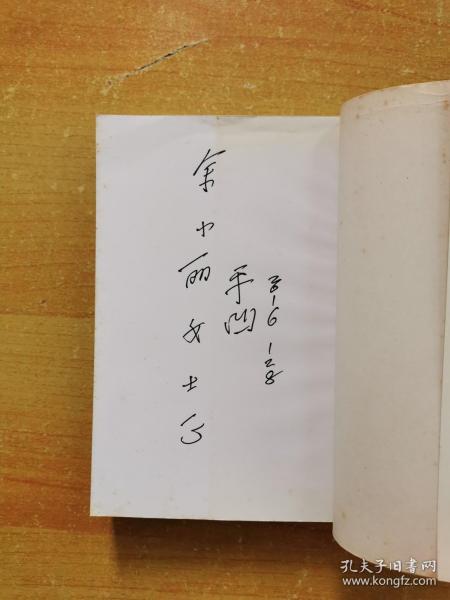 余小丽女士
平凹
孔夫子旧书网
www.kongfz.com